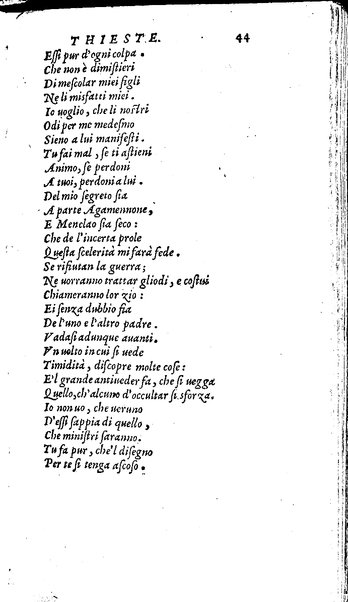 THIESTE. 44
Eſſi pur d'ogni colpa.
Che non è dimiſtieri
Di meſcolar miei figli
Ne li misfatti miei.
Io uoglio, che li noſtri
Odi per me medeſmo
Sieno a lui manifeſti.
Tu fai mal, ſe ti aſtieni
Animo, ſe perdoni
A tuoi, perdoni a lui.
Del mio ſegreto ſia
A parte Agamennone,
E Menelao ſia ſeco:
Che de l'incerta prole
Queſta ſcelerità mi farà fede.
Se rifiutan la guerra;
Ne uorranno trattar gliodi, e coſtui
Chiameranno lor zio:
Ei ſenza dubbio ſia
De l'uno e l'altro padre.
Vadaſi adunque auanti.
Vn uolto in cui ſi uede
Timidità, diſcopre molte coſe:
E'l grande antiueder fa, che ſi uegga
Quello, ch'alcuno d'occultar ſi sforza.
Io non uo, che ueruno
D'eſſi ſappia di quello,
Che miniſtri ſaranno.
Tu fa pur, che'l diſegno
Per te ſi tenga aſcoſo.